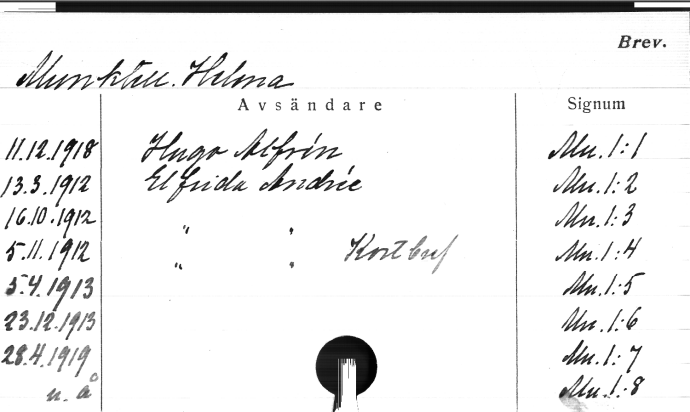 Brev.
Munktell. Helena
Avsändare Signum
11.12.1918 Hugo Alfvén Mu. 1:1
13.3.1912 Elfrida Andrée Mu. 1:2
16.10.1912 " " Mu. 1:3
5.11.1912 " " Kortbref Mu. 1:4
5.4.1913 Mu. 1:5
23.12.1913 Mu. 1:6
28.4.1919 Mu. 1:7
u. å Mu. 1:8